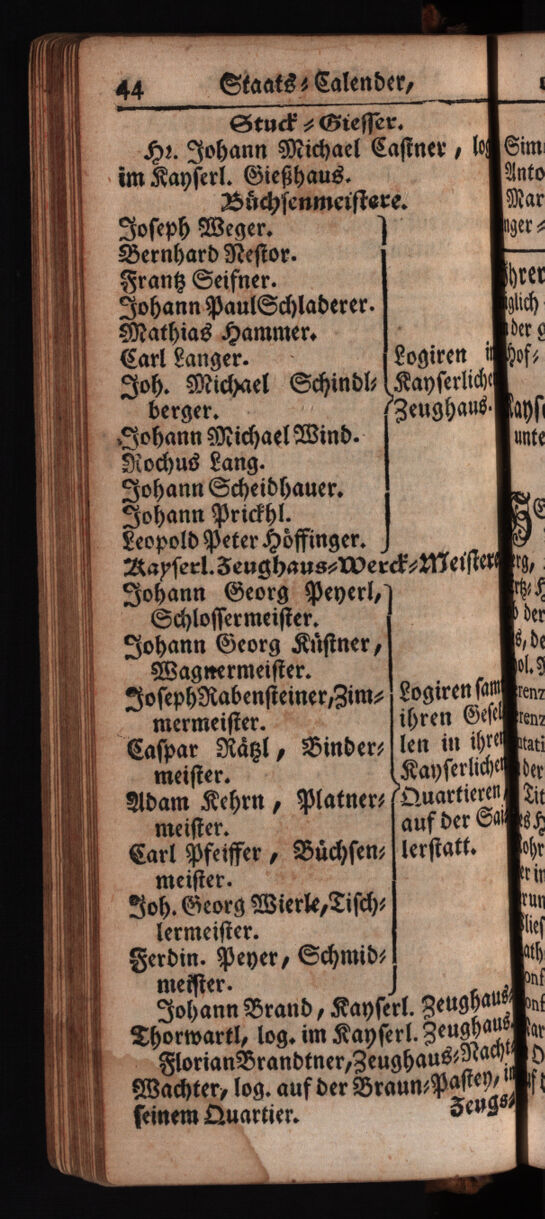 44 Staats-Calender,
Stuck-Giesser.
Hr. Johann Michael Castner, log
im Kayserl. Gießhaus.
Büchsenmeistere.
Joseph Weger.
Bernhard Nestor.
Frantz Seifner.
Johann Paul Schladerer.
Mathias Hammer.
Carl Langer.
Joh. Michael Schindl-
berger.
Johann Michael Wind.
Rochus Lang.
Johann Scheidhauer.
Johann Prickhl.
Leopold Peter Höffinger.
Logiren i
Kayserliche
Zeughaus.
Kayserl. Zeughaus-Werck-Meistere
Johann Georg Peyerl,
Schlossermeister.
Johann Georg Küstner,
Wagnermeister.
Joseph Rabensteiner, Zim-
mermeister.
Caspar Rätzl, Binder-
meister.
Adam Kehrn, Platner-
meister.
Carl Pfeiffer, Büchsen-
meister.
Joh. Georg Wierle, Tisch-
lermeister.
Ferdin. Peyer, Schmid-
meister.
Logiren samt
ihren Gesel-
len in ihren
Kayserlichen
Quartieren
auf der Sai-
lerstatt.
Johann Brand, Kayserl. Zeughaus-
Thorwartl, log. im Kayserl. Zeughaus.
Florian Brandtner, Zeughaus-Nacht-
Wachter, log. auf der Braun-Pastey, in
seinem Quartier.
Zeugs-